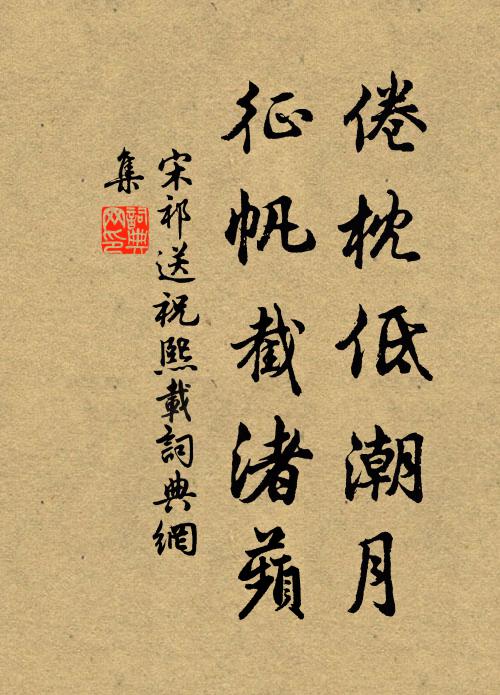 倦枕低潮月
征帆截渚蘋
宋祁送祝熙載詞典網
集
詞典網印